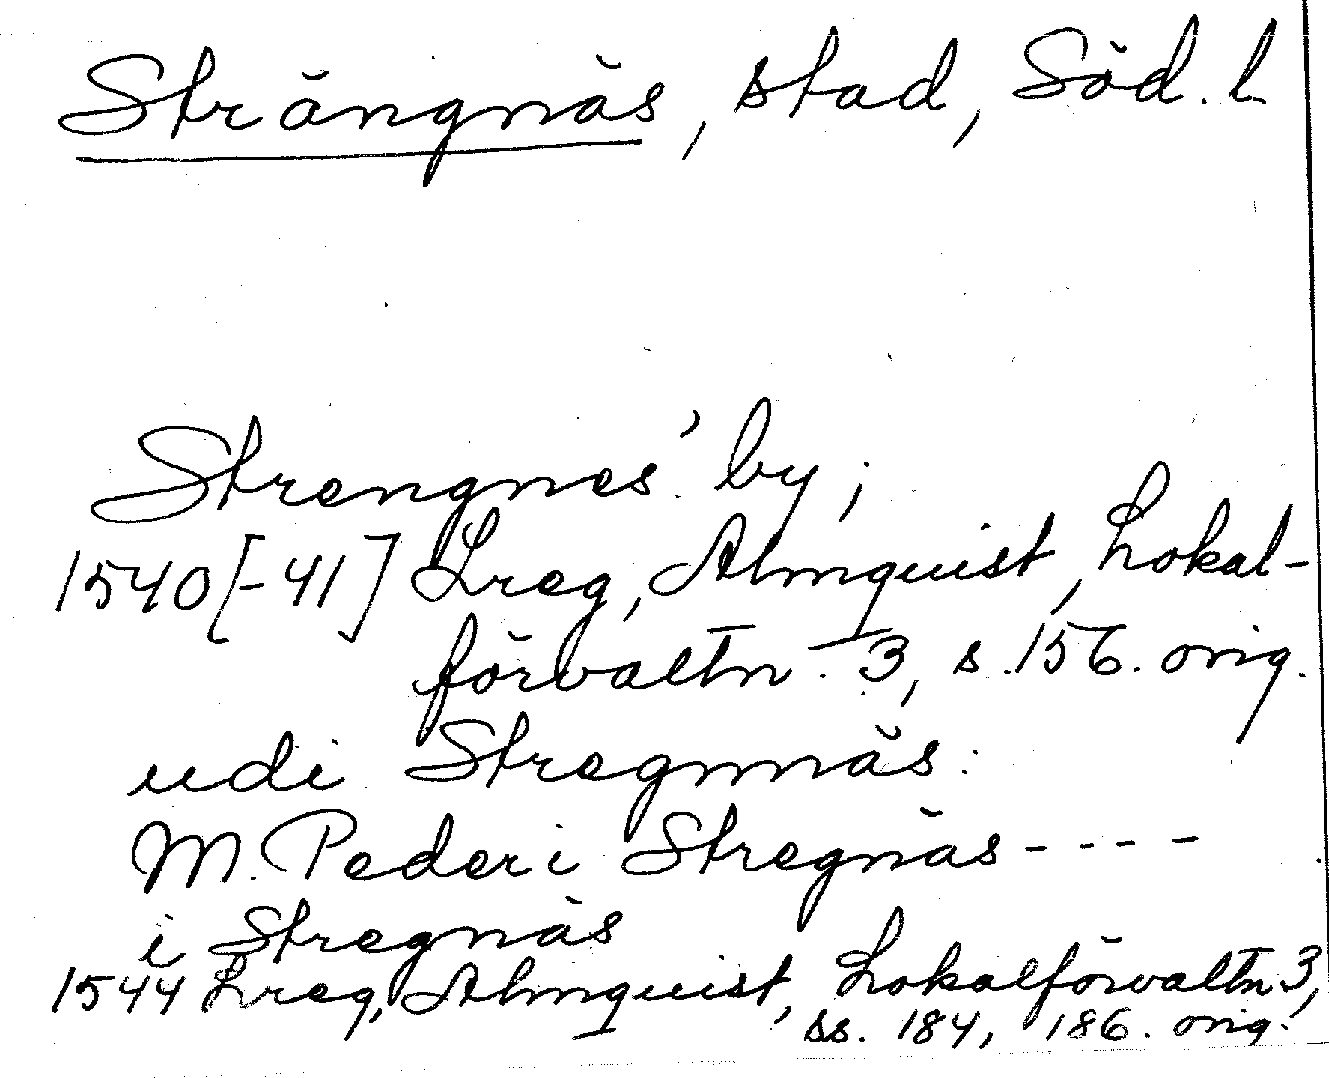 Strängnäs, stad, Söd. l
Strengnes' by;
1540[-41] Lreg, Almquist, Lokal-
förvaltn. 3, s. 156. orig.
udi Stregnnäs:
M. Peder i Stregnäs ----
i Stregnäs
1544 Lreg, Almquist, Lokalförvaltn 3,
ss. 184, 186. orig.